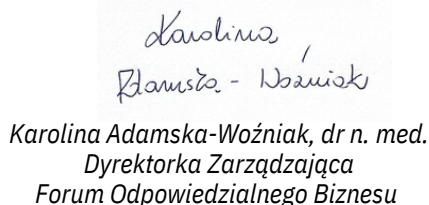 Karolina
Adamska - Woźniak
Karolina Adamska-Woźniak, dr n. med.
Dyrektorka Zarządzająca
Forum Odpowiedzialnego Biznesu